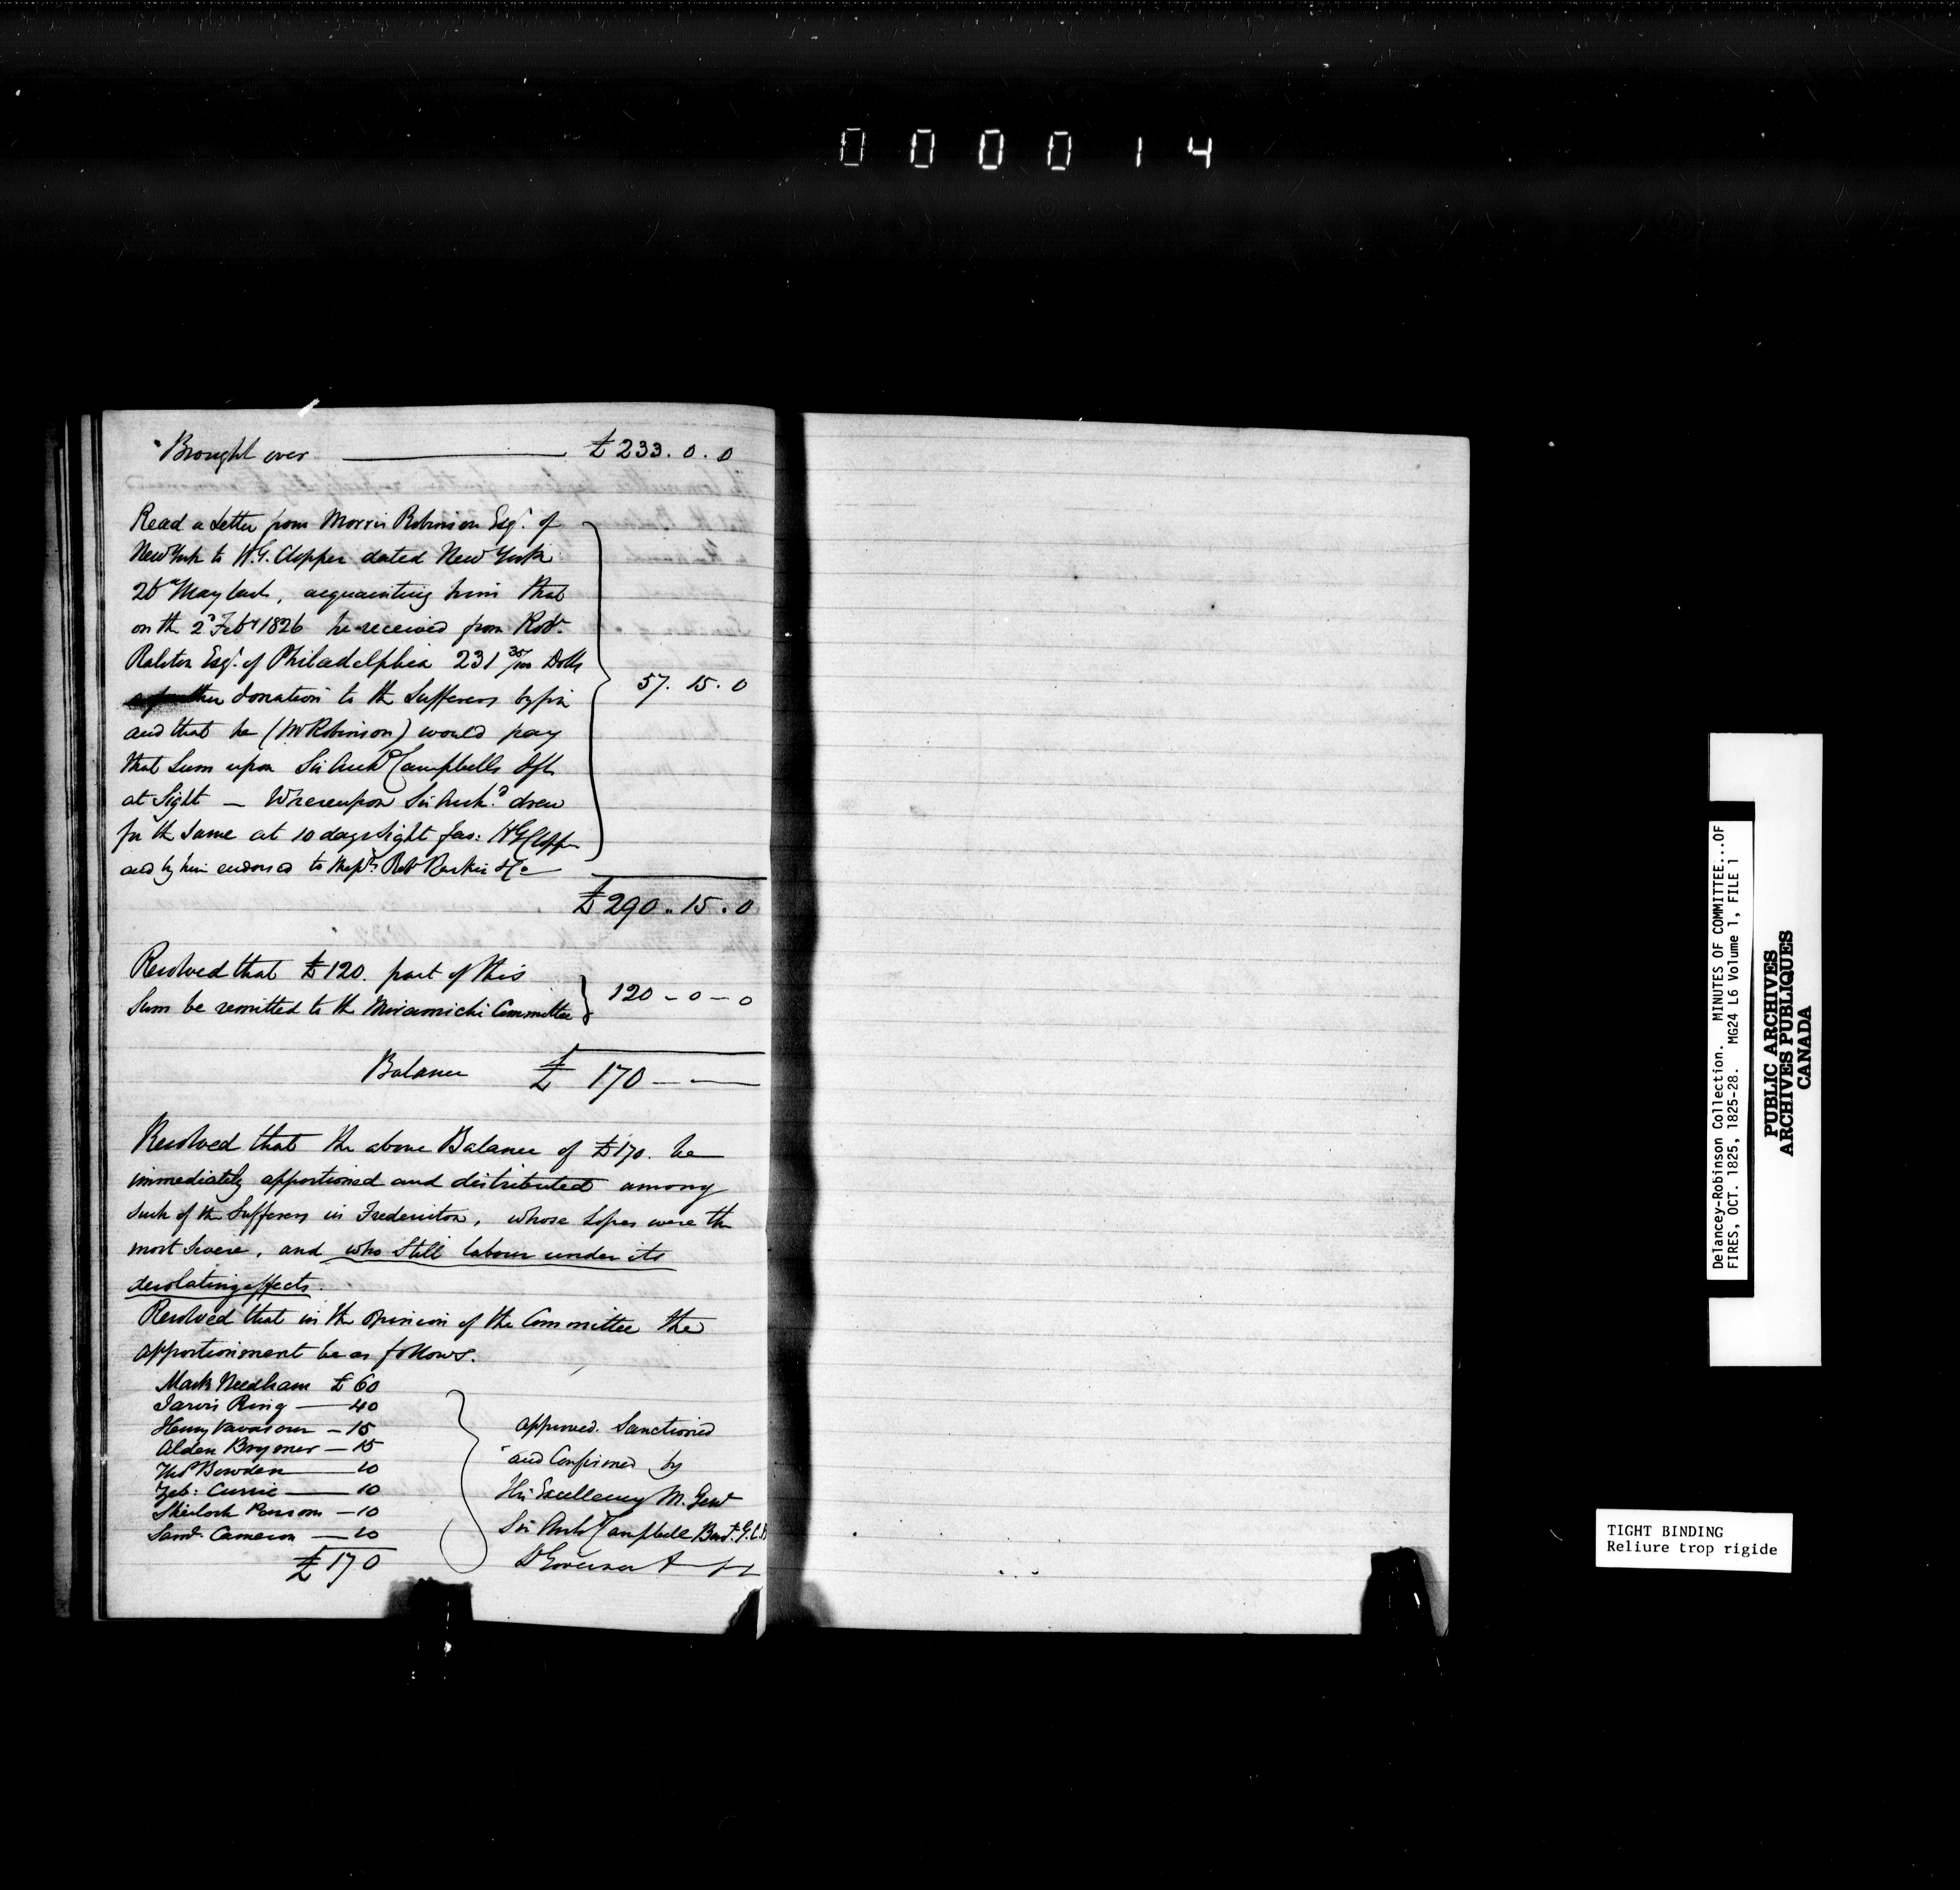 000014
Brought over £233.0.0
Read a Letter from Morris Robinson Esqr. of
New York to H.G. Clopper dated New York
May last, acquainting him that
on th 2d Feby 1826 he received from Robt.
Ralston Esqr. of Philadelphia 231 35/100 Dolls
donation to th Sufferers by fire
and that he (Mr Robinson) would pay
57. 15. 0
that Sum upon Sir Archd Campbells dft
at Sight — Whereupon Sir Archd. drew
for th Same at 10 days Sight fav: HGClopper
and by him endorsed to Messrs Robt Rankin & Co
£290..15.0
Resolved that £120. part of this
Sum be remitted to th Miramichi Committee 120-0-0
Balance £170--
Resolved that the above Balance of £170. be
immediately apportioned and distributed among
such of th Sufferers in Fredericton, whose losses were th
most severe, and who still labour under its
desolating effects.
Resolved that in th opinion of the Committee the
apportionment be as follows.
Mark Needham £60
Jarvis Ring — 40
Henry Vavasour — 15
Alden Brymer — 15
Thos Bowden — 10
Zeb: Currie — 10
Sherlock — 10
Saml. Cameron — 10
£170
approved. Sanctioned
and Confirmed by
His Excellency M. Genl
Sir Archd Campbell Bart. G.C.B
Lt Governor
Delancey-Robinson Collection. MINUTES OF COMMITTEE...OF
FIRES, OCT. 1825, 1825-28. MG24 L6 Volume 1, FILE 1
PUBLIC ARCHIVES
ARCHIVES PUBLIQUES
CANADA
TIGHT BINDING
Reliure trop rigide